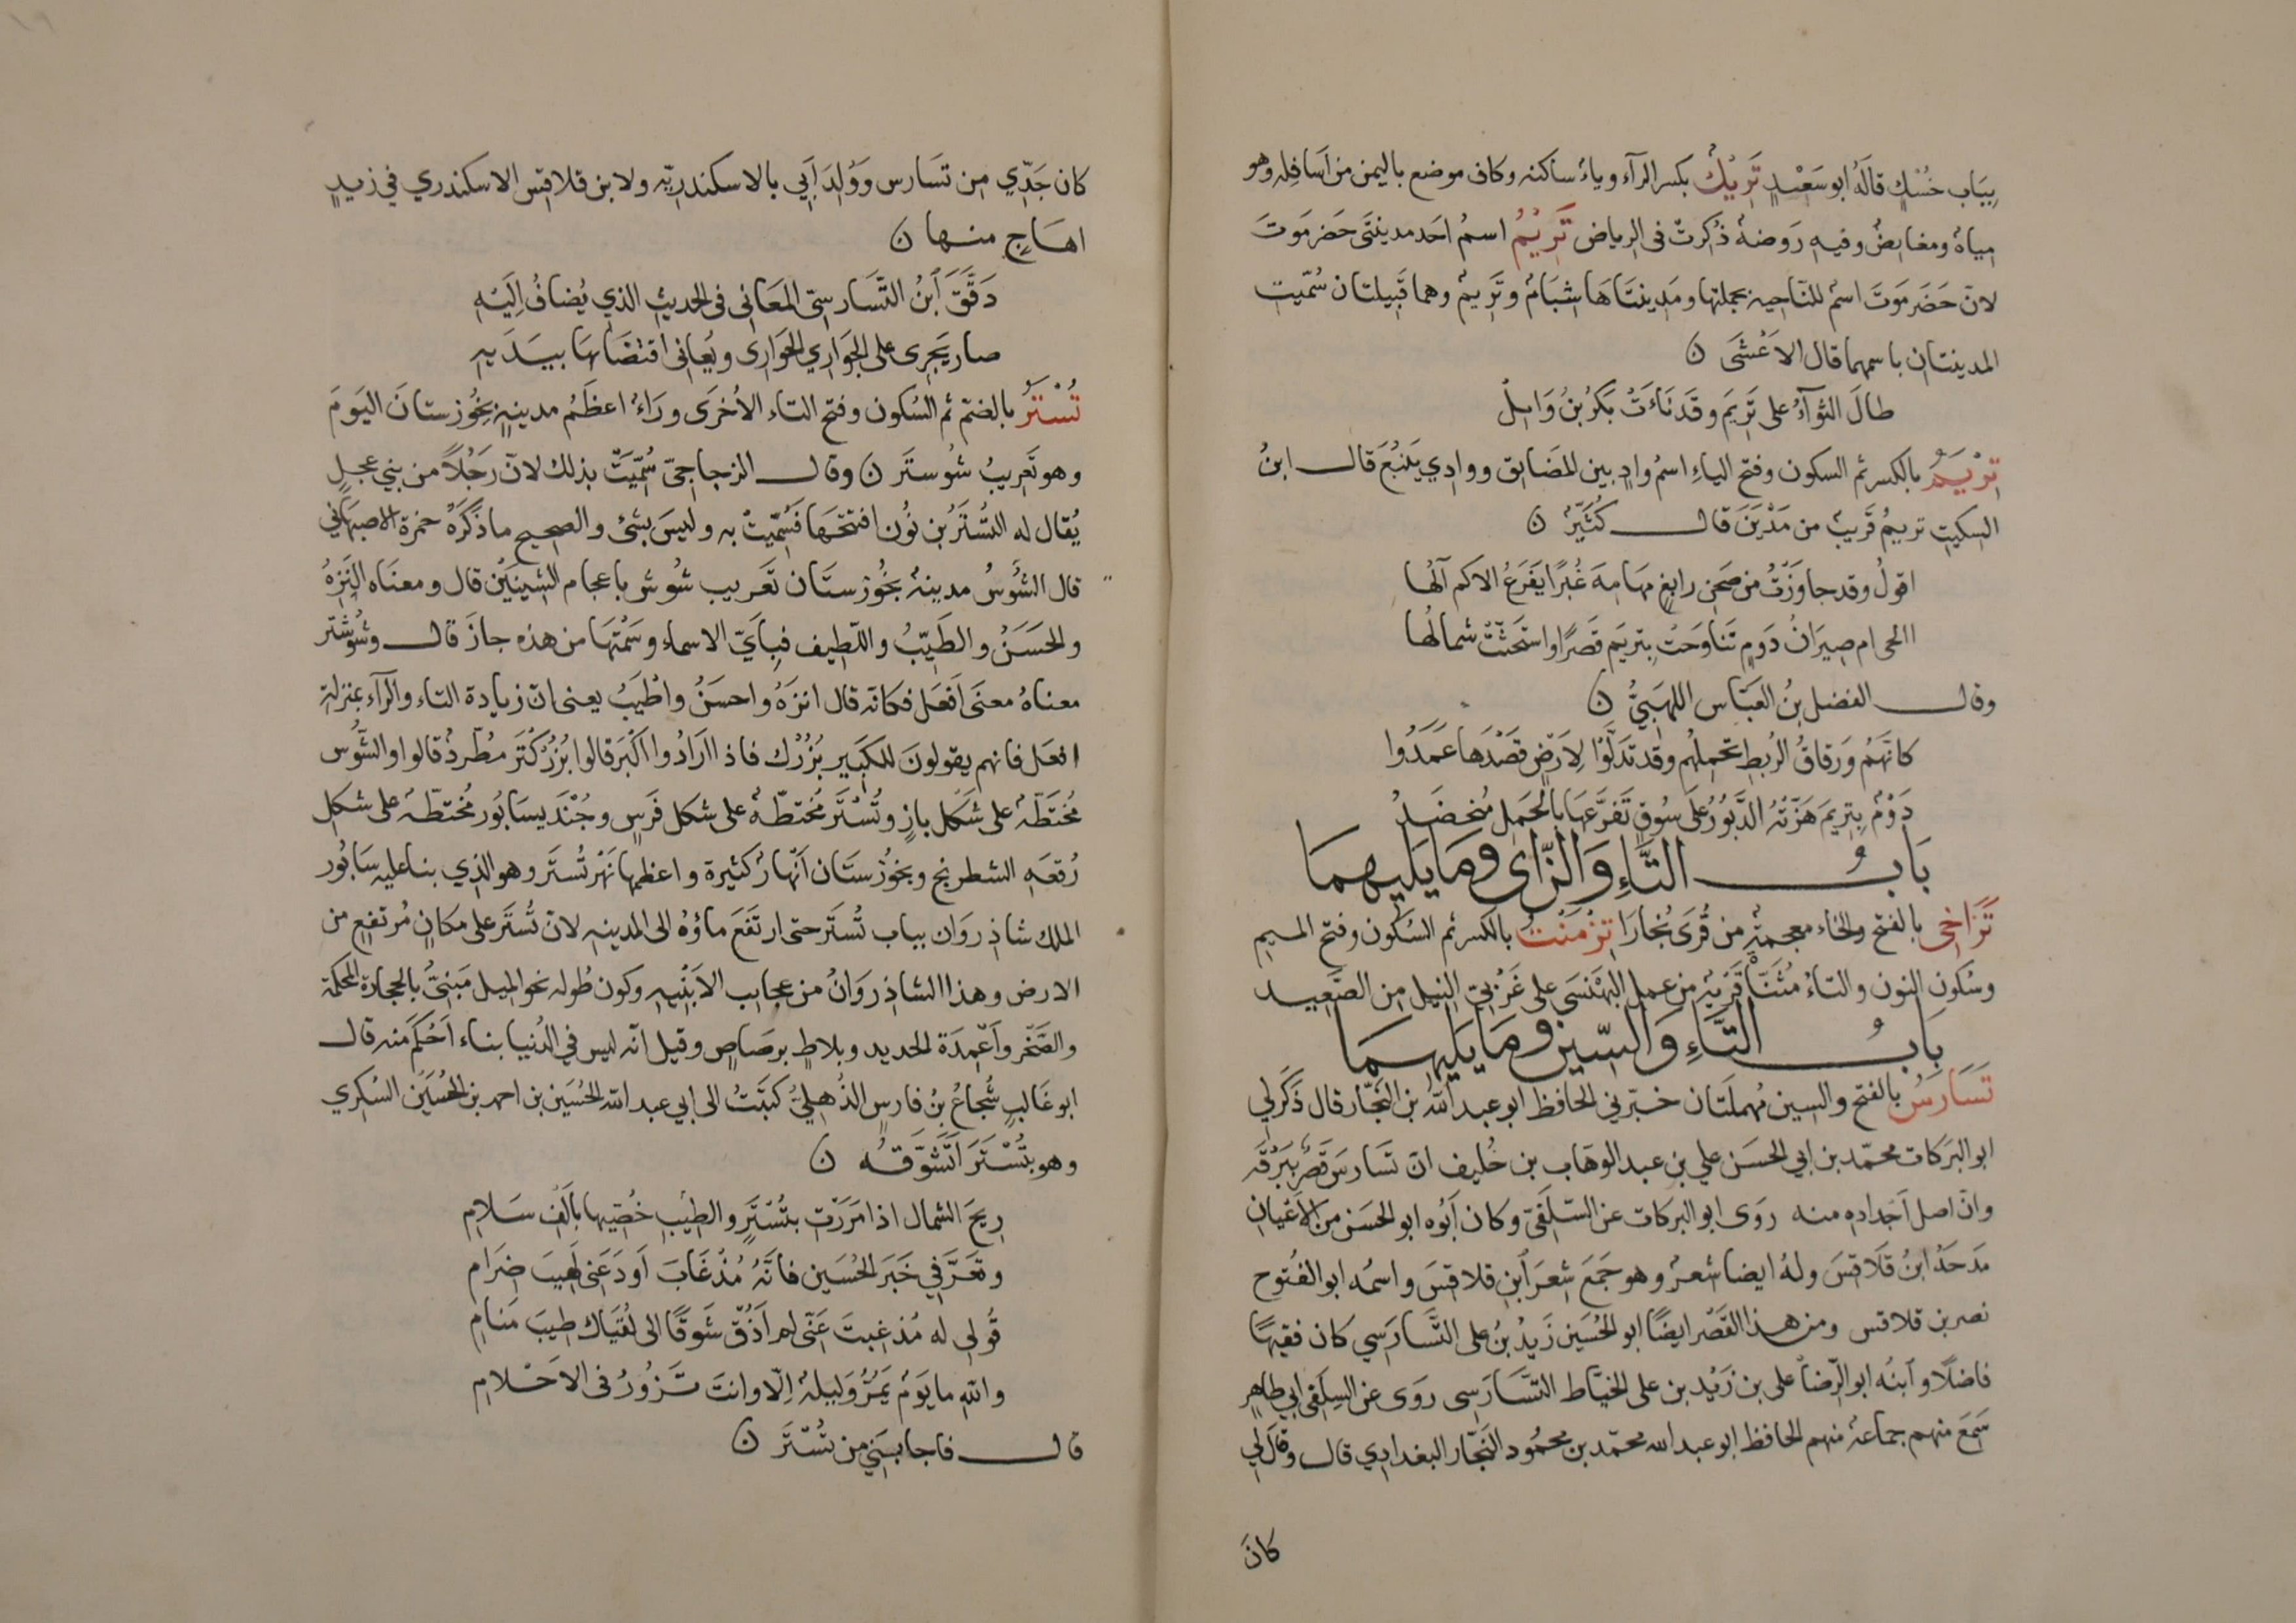 بِبَاب خُسْكٍ قالهُ ابو سَعْيدٍ تَرِيْكُ بكسر الرآء وياءُ ساكنه وكاف موضع باليمن من اَسافِله وهو
مياهٌ ومغايضُ وفيهِ رَوضهٌ ذُكِرتْ فى الرياض تَرِيْمُ اسمُ احَد مدينتَى حَضرمَوتَ
لانّ حَضَرمَوتَ اسمٌ للنّاحيه بجملتها ومَدينتَاهَا شبَامُ وتَرِيمُ وهما قَبيلتان سُمّيت
المدينتان باسمهما قال الاَعْشَى ن
طالَ الثوآءُ على تَرِيمَ وقَد نَاءَتْ بَكرُ بنُ وَايلْ
تِرْيَمُ بالكسر ثم السكون وفتح الياءِ اسمُ وادٍ بين المضَايق ووادِي يَنْبُعَ قال ابنُ
السكيت تريمُ قَريبٌ من مَدْيَنَ قال كُثَيّرٌ ن
اقولُ وقد جاوَزْتُ من صَحنِ رابغٍ مهَامِهَ غُبْرًا يَفرَعُ الاكم آلُها
االحى ام صِيرَانُ دَومٍ تَناوَحَتْ بِتريَم قَصرًا واستَحثّتْ شمالُها
وقال الفضل بنُ العَبّاس اللهَبِيُّ ن
كانّهَمُ وَرقاقُ الرَيطِ تحمِلُهم وقد تدَلَّوْا لِاَرضٍ قصْدَها عَمَدُوا
دَوْمٌ بِتِريَمَ هَزّتْهُ الدَّبُوْرُ عَلَى سُوفٍ تَفرَّعَهَا بالحَمل مُنخضَدُ
بَابُ التَّاءِ وَالزّاىِ ومَا يَليهمَا
تَزَاخى بالفتح والخاء معجمةٌ من قُرَى بُخارَا تِزْمَنْتُ بالكسر ثم السُكون وفتح الميم
وسُكون النون والتاءُ مُثَنّاة قَريْةٌ من عمل البَهْنَسَى على غَرْبيّ النيل من الصَّعيد
بَابُ التَّاءِ وَالسّين وَمَا يَلِيهمَا
تَسَارَسُ بالفتح والسين مُهملَتَان خبّرني الحافظ ابو عبد الله بن النّجّار قال ذَكَرلي
ابو البَركات محمّد بن ابي الحسَن علي بن عبد الوهّاب بن حُليف انّ تَسَارسَ قَصرٌ بِبَرْقَه
وانّ اصل اَجْدادِه منه روَى ابو البركات عن السّلَفىّ وكان اَبُوه ابو الحَسَن من الاَعْيان
مَدحَهُ ابنُ قَلَاقسَ ولهُ ايضا شعرٌ وهو جَمَعَ شِعرَ ابنِ قلاقسَ واسمُه ابو الفُتوح
نصر بن قلاقس ومن هذا القَصْر ايضًا ابو الحُسَين زَيدُ بنُ على التَّسَارَسي كان فقيهًا
فاضلًا وابنُه ابو الرّضا على بن زَيْد بن على الخيّاط التسَّارَسى روَى عن السِلَفى ابي طاهِر
سَمعَ منهم جماعهٌ منهم الحافظ ابو عبد الله محمّد بن محمُود النّجّار البغدادِي قال وقالَ لي
كانَ
كان جَدّي من تسَارس ووُلِدَ اَبي بالاسكندريّه ولابن قلاقس الاسكندري في زيدٍ
اهَاجٍ منها ن
دَقَّقَ اَبنُ التَّسَارسىّ المعَانى فى الحديثِ الذي يُضافُ اِلَيْهِ
صار يَجرِى على الجَوَارِي الجَوَارى ويُعانى اقتضَاهَا بيَدَيهِ
تُسْتَرُ بالضمّ ثم السُكون وفتح التاء الاُخرَى ورَاءٌ اعظَمُ مدينةٍ بِخُوزستانَ اليَومَ
وهو تَعريبُ شُوستَر ن وقال الزجاجىّ سُمّيَتْ بذلك لانّ رَجُلًا من بني عجلٍ
يُقال له التُسْتَرُ بن نُون افتتحَها فَسُمّيتْ به وليسَ بشئ والصحيح ما ذكرَهُ حمزة الاصبهَاني
قال الشُوسُ مدينهٌ بخُوزستَان تَعريب شُوش باعجام الشينَيْن قال ومعنَاه النَزهُ
والحَسَنُ والطَيّبُ واللّطيف فبِاَيّ الاسماء وسَمْتَهَا من هذه جازَ قال وشُوشْتَر
معناهُ معنَى اَفعَل فكانّه قال انزَهُ واحسَنُ واَطْيَبُ يعنى انّ زيادة التاء والرآء بمنزلةِ
افعَل فانهم يقولونَ للكَبير بُزُرْك فاذا ارَادُوا اَكْبَرَ قالوا بُزُرْكْتَر مطّردٌ قالوا والسُّوس
مُختَطّةٌ على شكَل بازٍ وتُسْتَر مُختطّهٌ على شكل فَرَسٍ وجُنْدَيسَابُور مُختطّه على شكِل
رُقعَهِ الشطرنج وبخُوزستَان اَنّهارٌ كثيرة واعظمها نَهْر تُستَر وهو الذي بنا عليه سَابُور
الملك شاذِروَان بباب تُستَر حتى ارتَفَعَ ماؤهُ الى المدينهِ لانّ تُستَر على مكانٍ مُرتفعٍ من
الارض وهذا الشاذِروَانُ من عجايب الاَبْنيه وكون طُوله نحو الميل مَبنيٌّ بالحجارة المحكمة
والصَّخر واَعْمِدَة الحديد وبلاطٍ برصَاصٍ وقيل انّه ليس في الدُنيا بناء اَحْكَمَ منه قال
ابو غَالبٍ شُجاعُ بنُ فارسٍ الذُهليُّ كتَبْتُ الى ابي عبد الله الحُسَين بن احمد بن الحُسَين السُكري
وهو بتُسْتَرَ اَتَشَوَّقُه ن
رِيحَ الشمال اذا مَررَتِ بتُسْتَرٍ والطيْبِ خُصّيها باَلَفِ سَلامِ
وتَعَرَّفي خَبَر الحُسَين فانّهُ مُذْ غَابَ اَودَعَني لَهيبَ ضَرامِ
قُولي له مُذ غبتَ عَنّى لم اَذُقْ شَوقًا الى لُقيَاكَ طيبَ مَنامِ
والله ما يَومٌ يَمُرُّ وَليلةٌ اِلّا وانتَ تَزُورُ فى الاَحْلامِ
قال فاجابَنِي من تُسْتَرَ ن